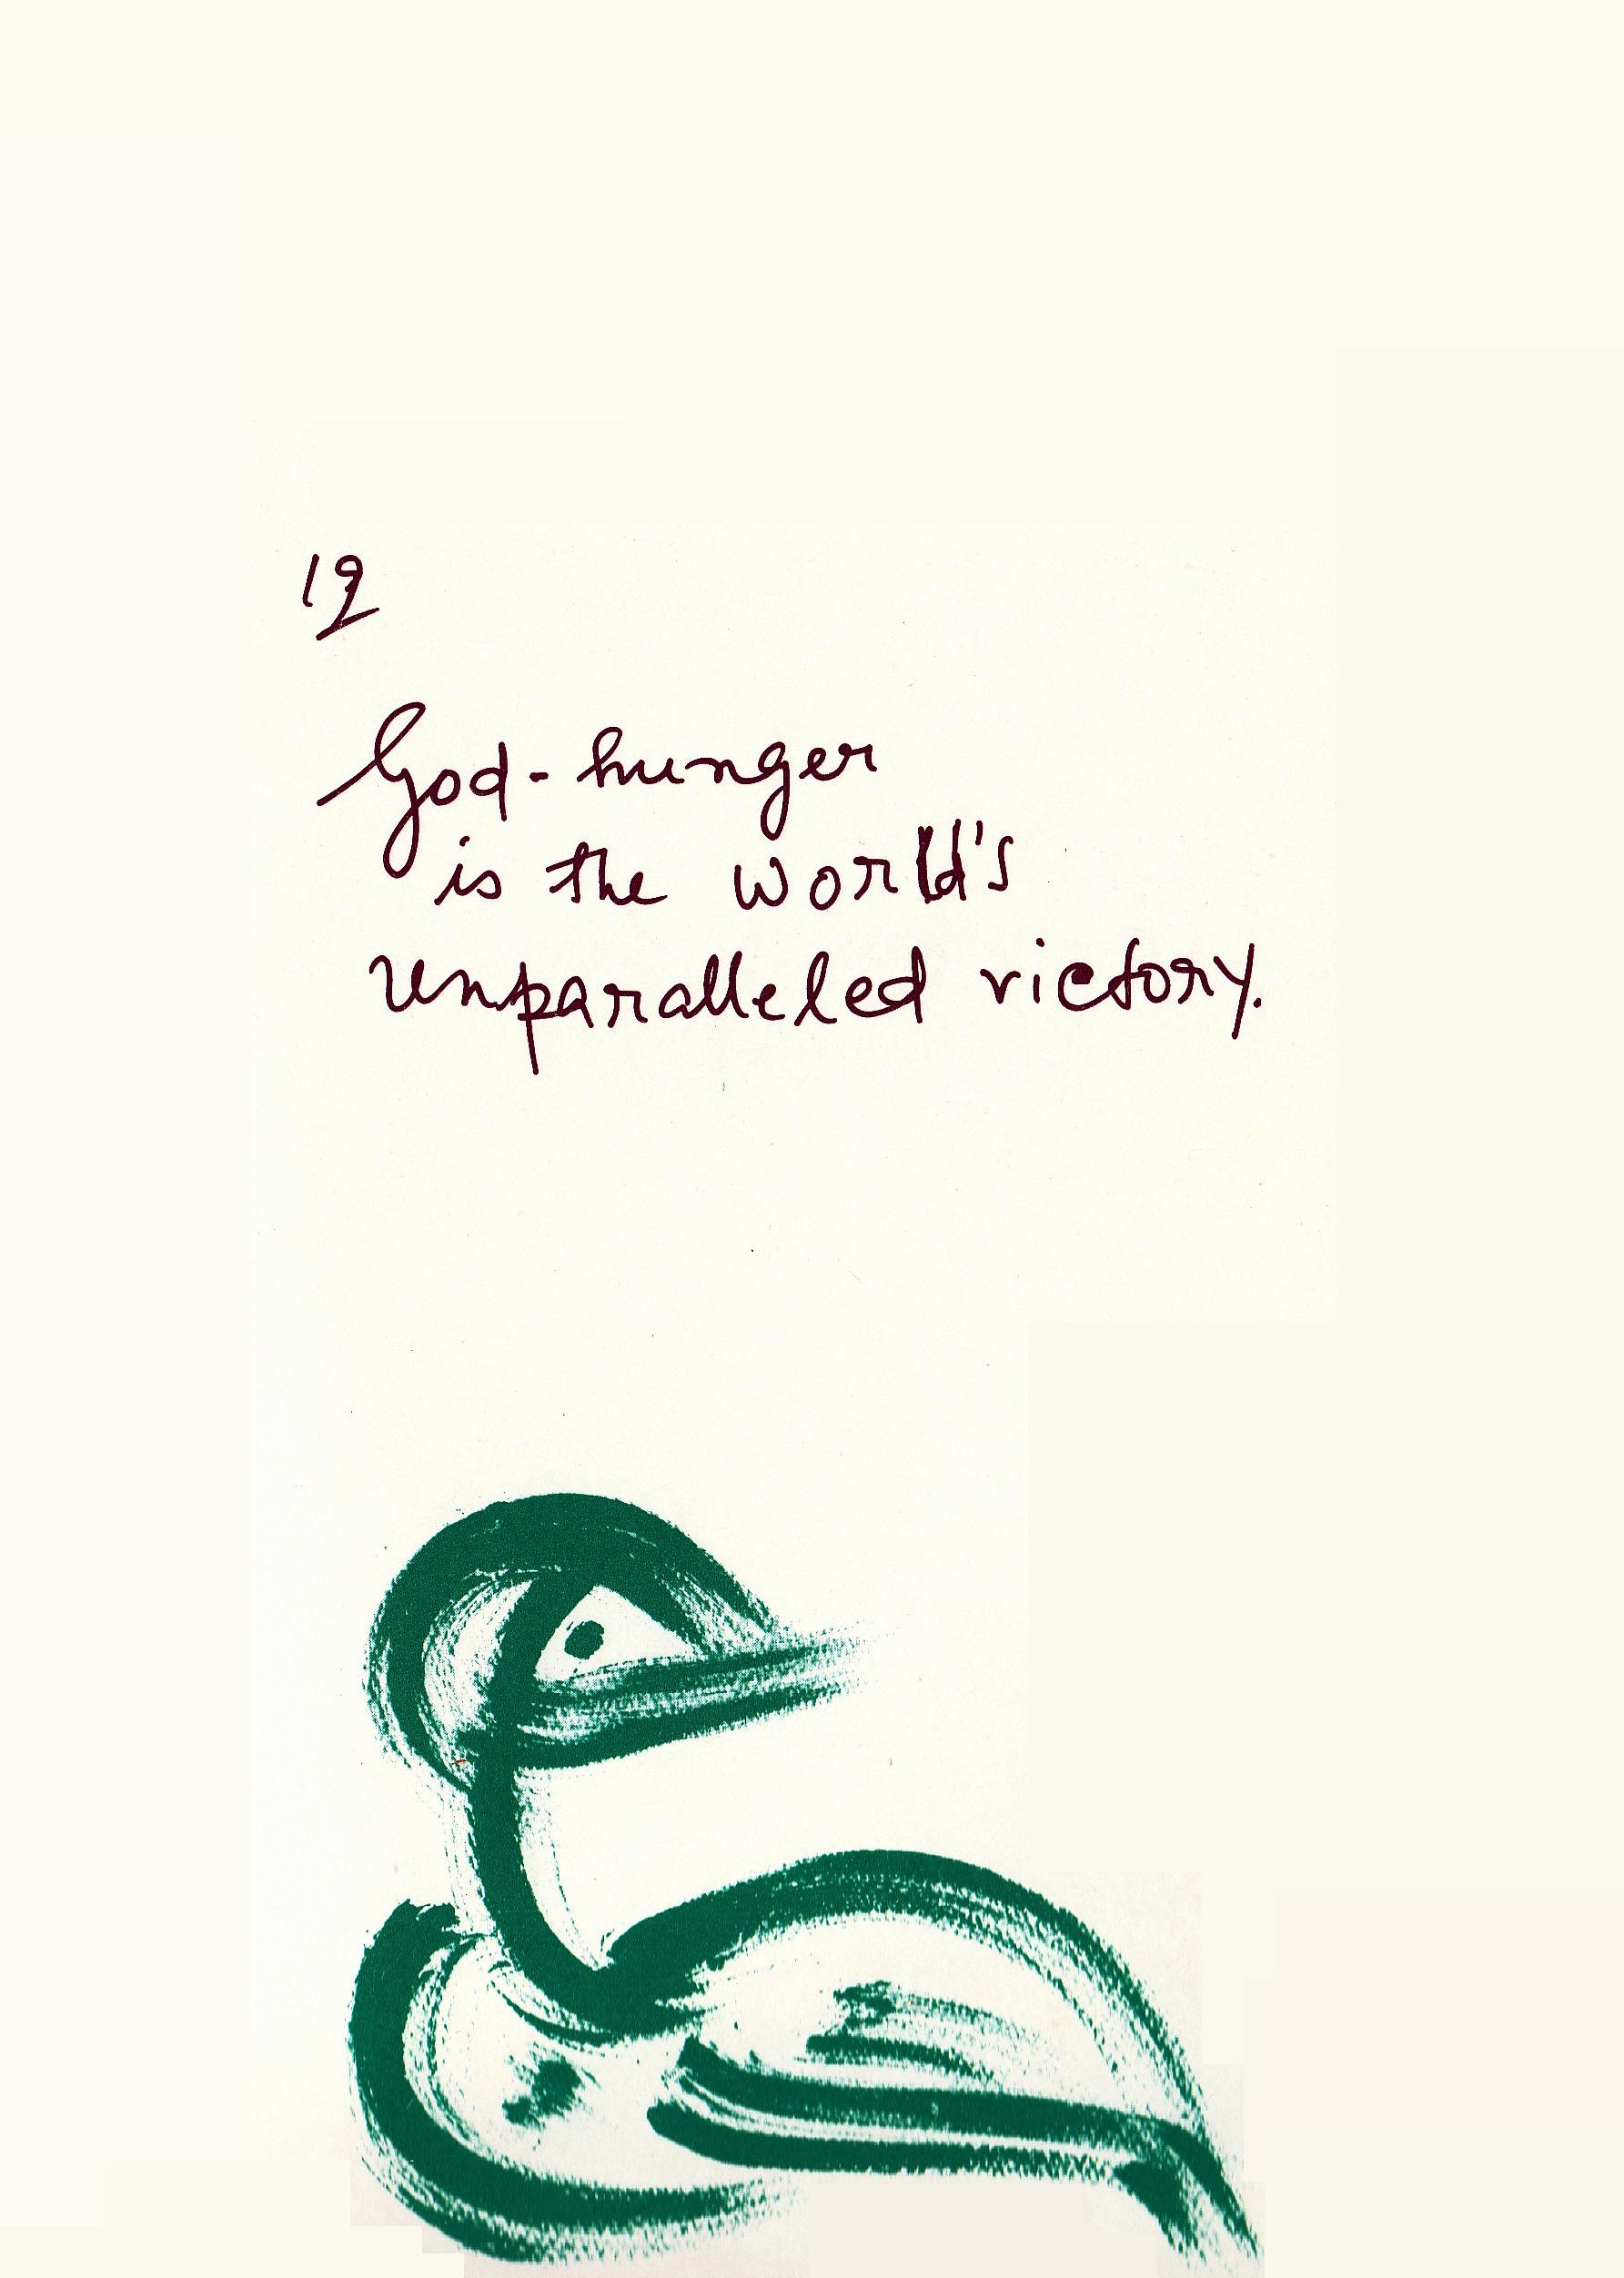 19
God-hunger
is the world's
unparalleled victory.